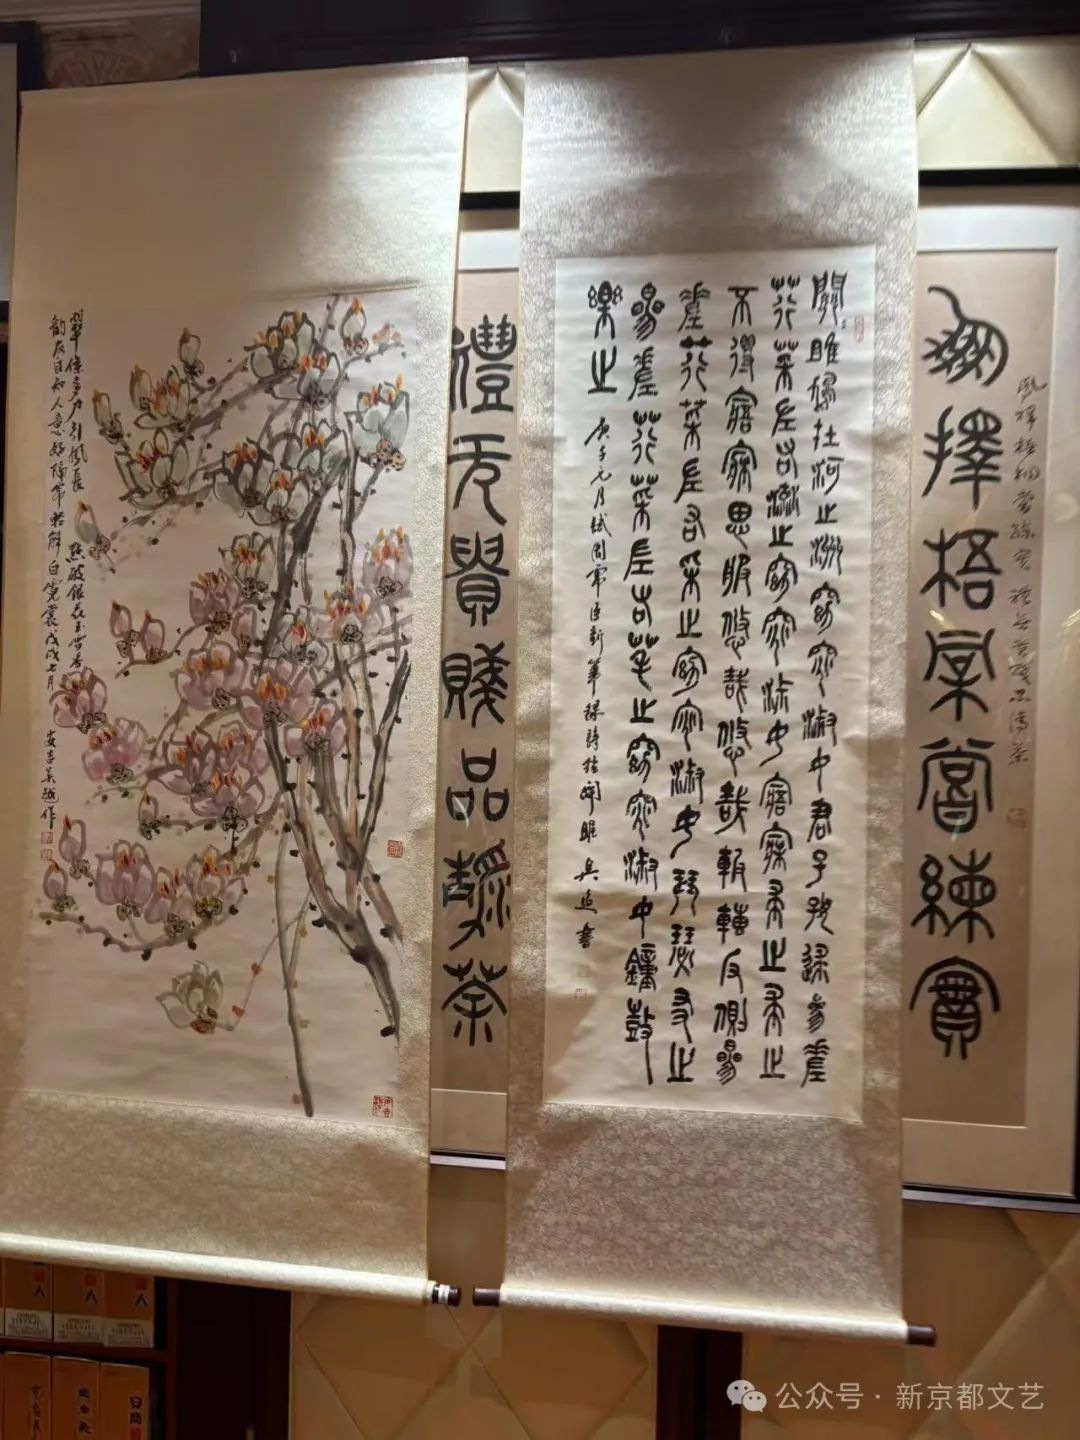 擇梧
嘗練實
關〻雎鳩在河之洲窈窕淑女君子好逑參差
荇菜左右流之窈窕淑女寤寐求之求之
不得寤寐思服悠哉悠哉輾轉反側參
差荇菜左右采之窈窕淑女琴瑟友之
參差荇菜左右芼之窈窕淑女鐘鼓
樂之
庚子元月 新筆録詩經關雎 書
禮无貴賤品 茶
翠條多力引風長 點破銀花玉雪香
韵友自知人意好隔帘輕解白霓裳戊戌七月 安吉吴 作
人
人
人
公众号 · 新京都文艺